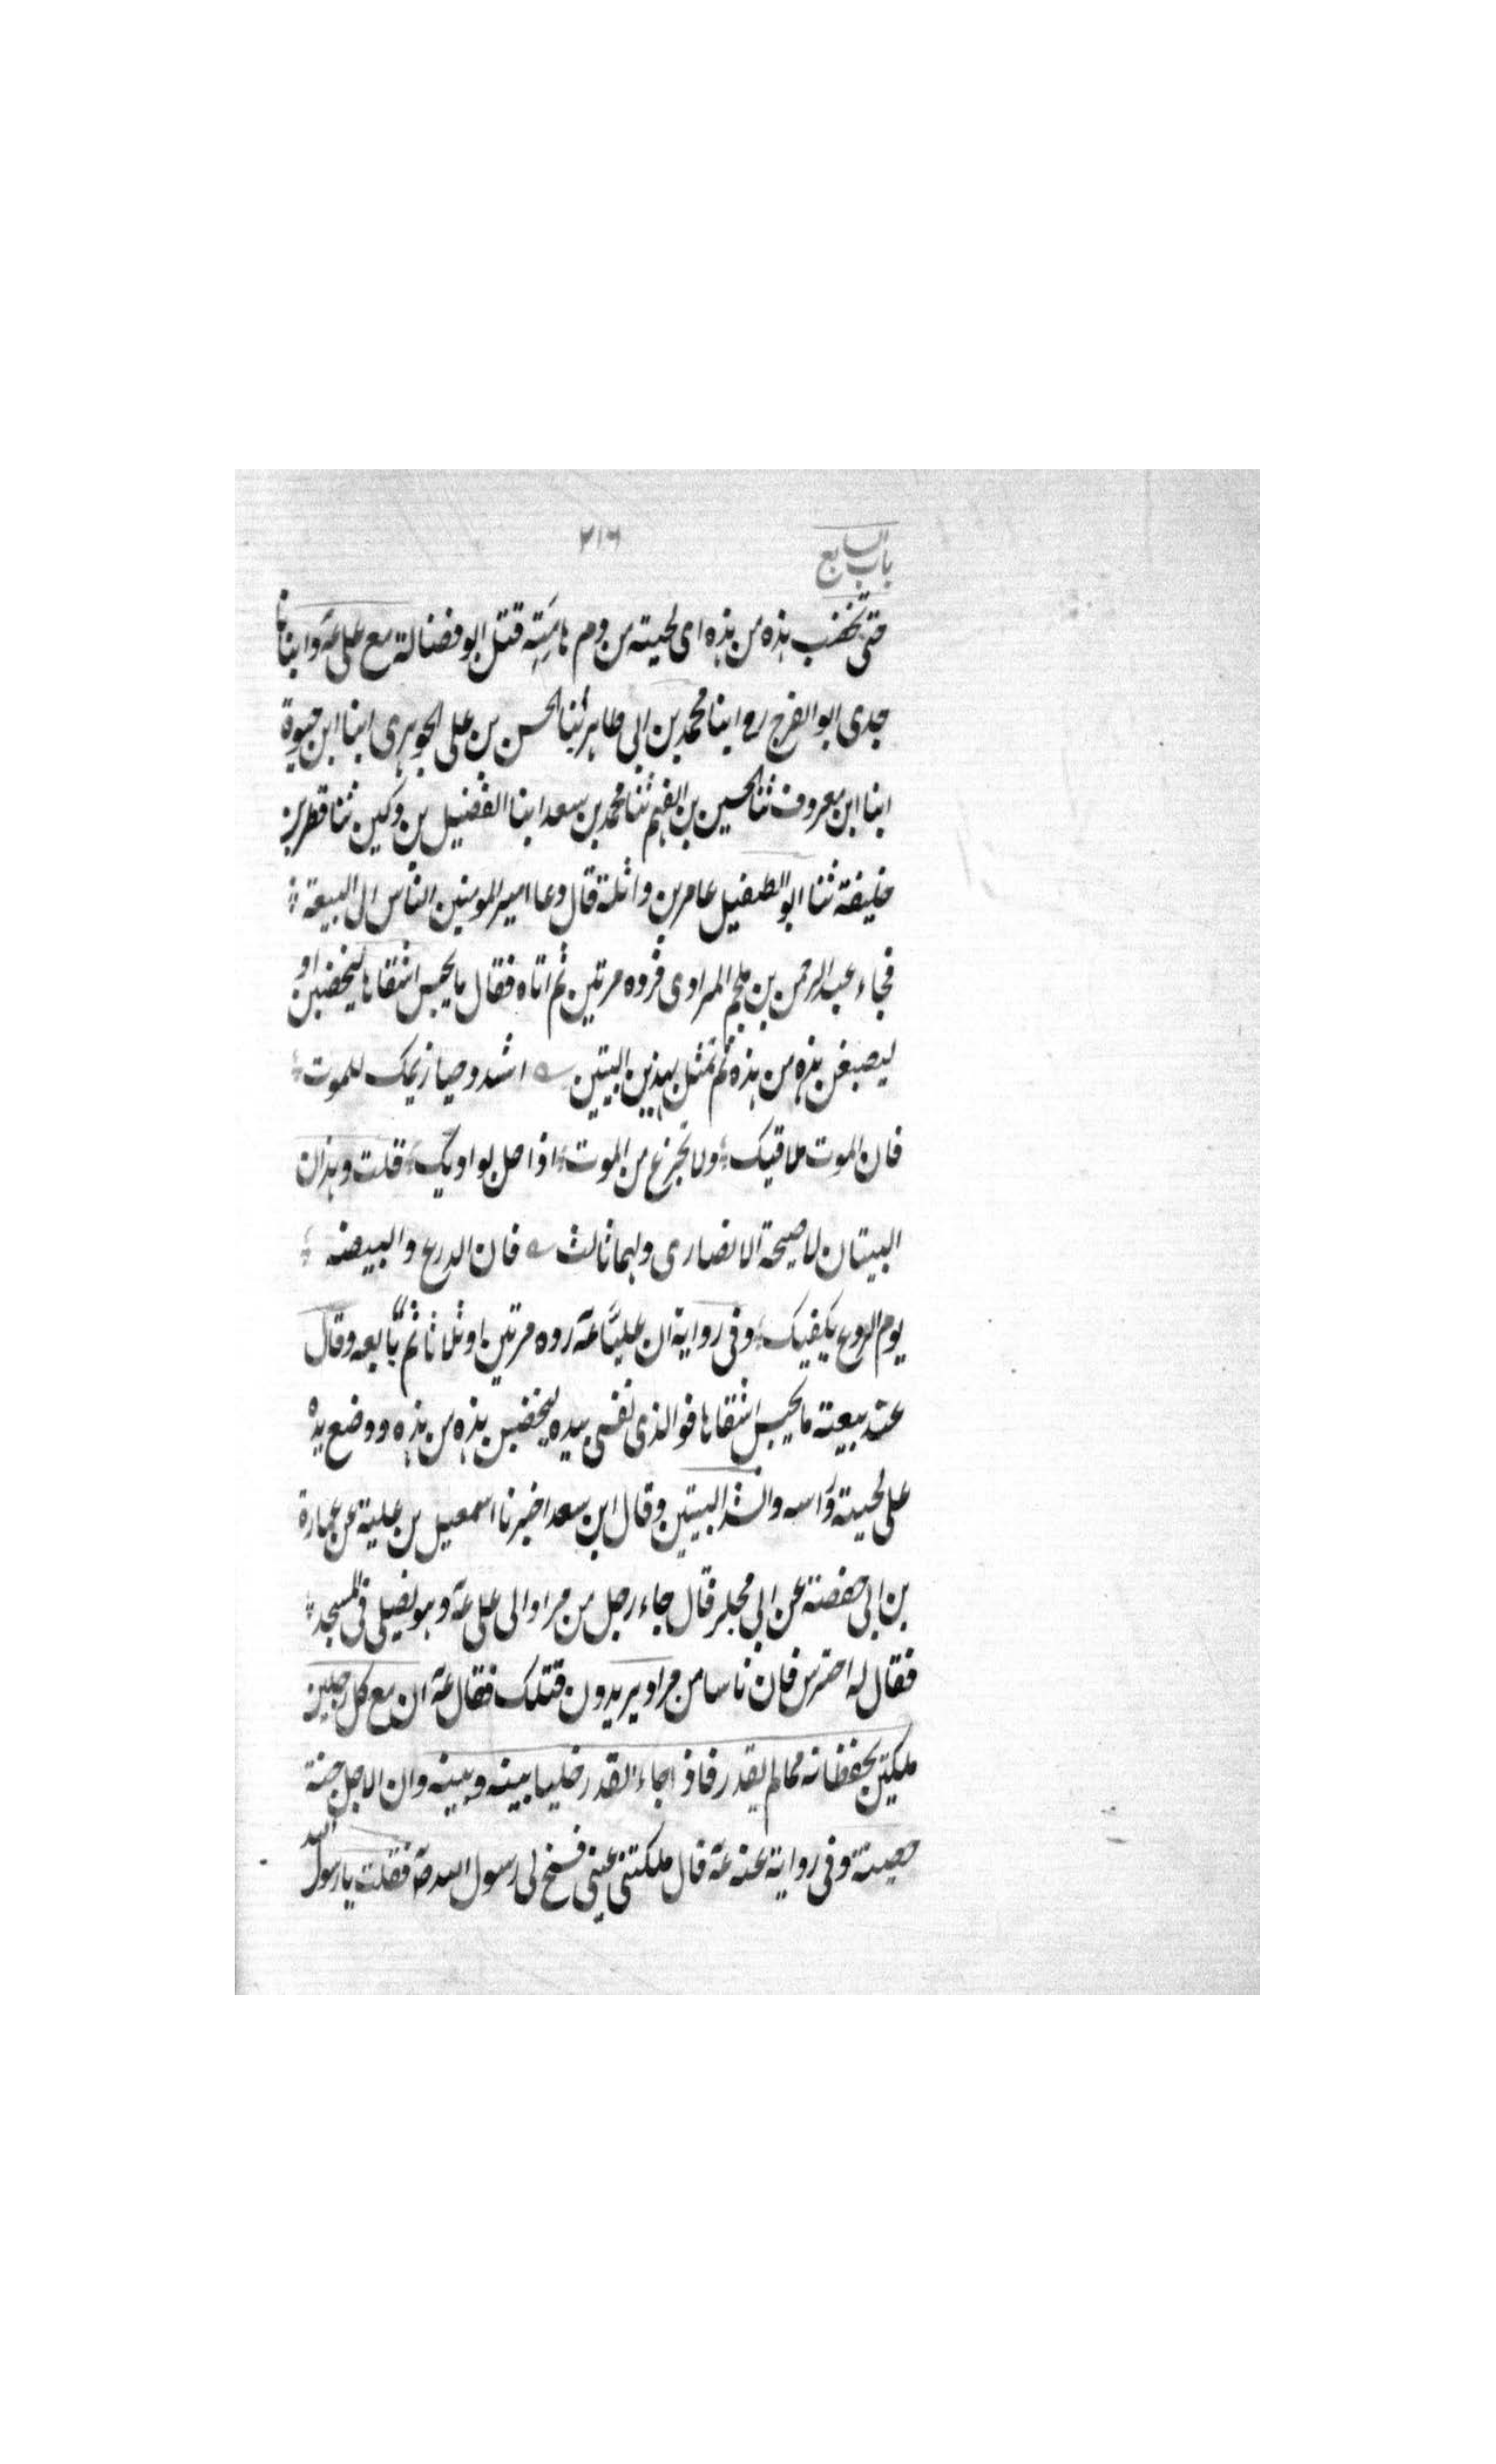 باب السابع
٢١٦
حتى تخضب هذه من هذه اى لحيته من دم هامته قتل ابو فضالة مع على عهٓ وابنانا
جدى ابو الفرج ره ابنا محمد بن ابى طاهر ابنا الحسن بن على الجوهرى ابنا ابن حيوة
ابنا ابن معروف ثنا الحسين بن الفهم ثنا محمد بن سعد ابنا الفضيل بن دكين ثنا قطر بن
خليفة ثنا ابو الطفيل عامر بن واثلة قال دعا امير المومنين الناس الى البيعة
فجاء عبد الرحمن بن ملجم المرادى فرده مرتين ثم اتاه فقال ما يحبس اشقاها ليخضبن او
ليصبغن هذه من هذه ثم تمثل بهذين البيتين اشدد حيازيمك للموت
فان الموت ملاقيك ولا تجزع من الموت اذا حل بواديك قلت وهذان
البيتان لاحيحة الانصارى ولهما ثالث فان الدرع والبيضه
يوم الروع يكفيك وفى رواية ان عليّا عهٓ رده مرتين او ثلاثا ثم بايعه وقال
عند بيعته ما يحبس اشقاها فوالذى نفسى بيده ليخضبن هذه من هذه ووضع يده
على لحيته وراسه وانشد البيتين وقال ابن سعد اخبرنا اسمعيل بن علية عن عمارة
بن ابى حفصة عن ابى مجلز قال جاء رجل من مراد الى على عهٓ وهو يصلى فى المسجد
فقال له احترس فان ناسا من مراد يريدون قتلك فقال عهٓ ان مع كل رجلين
ملكين يحفظانه مما لم يقدر فاذا جاء القدر خليا بينه وبينه وان الاجل جنة
حصينة وفى رواية عنه عهٓ قال ملكتنى عينى فسنح لى رسول الله صهٓ فقلت يا رسول الله